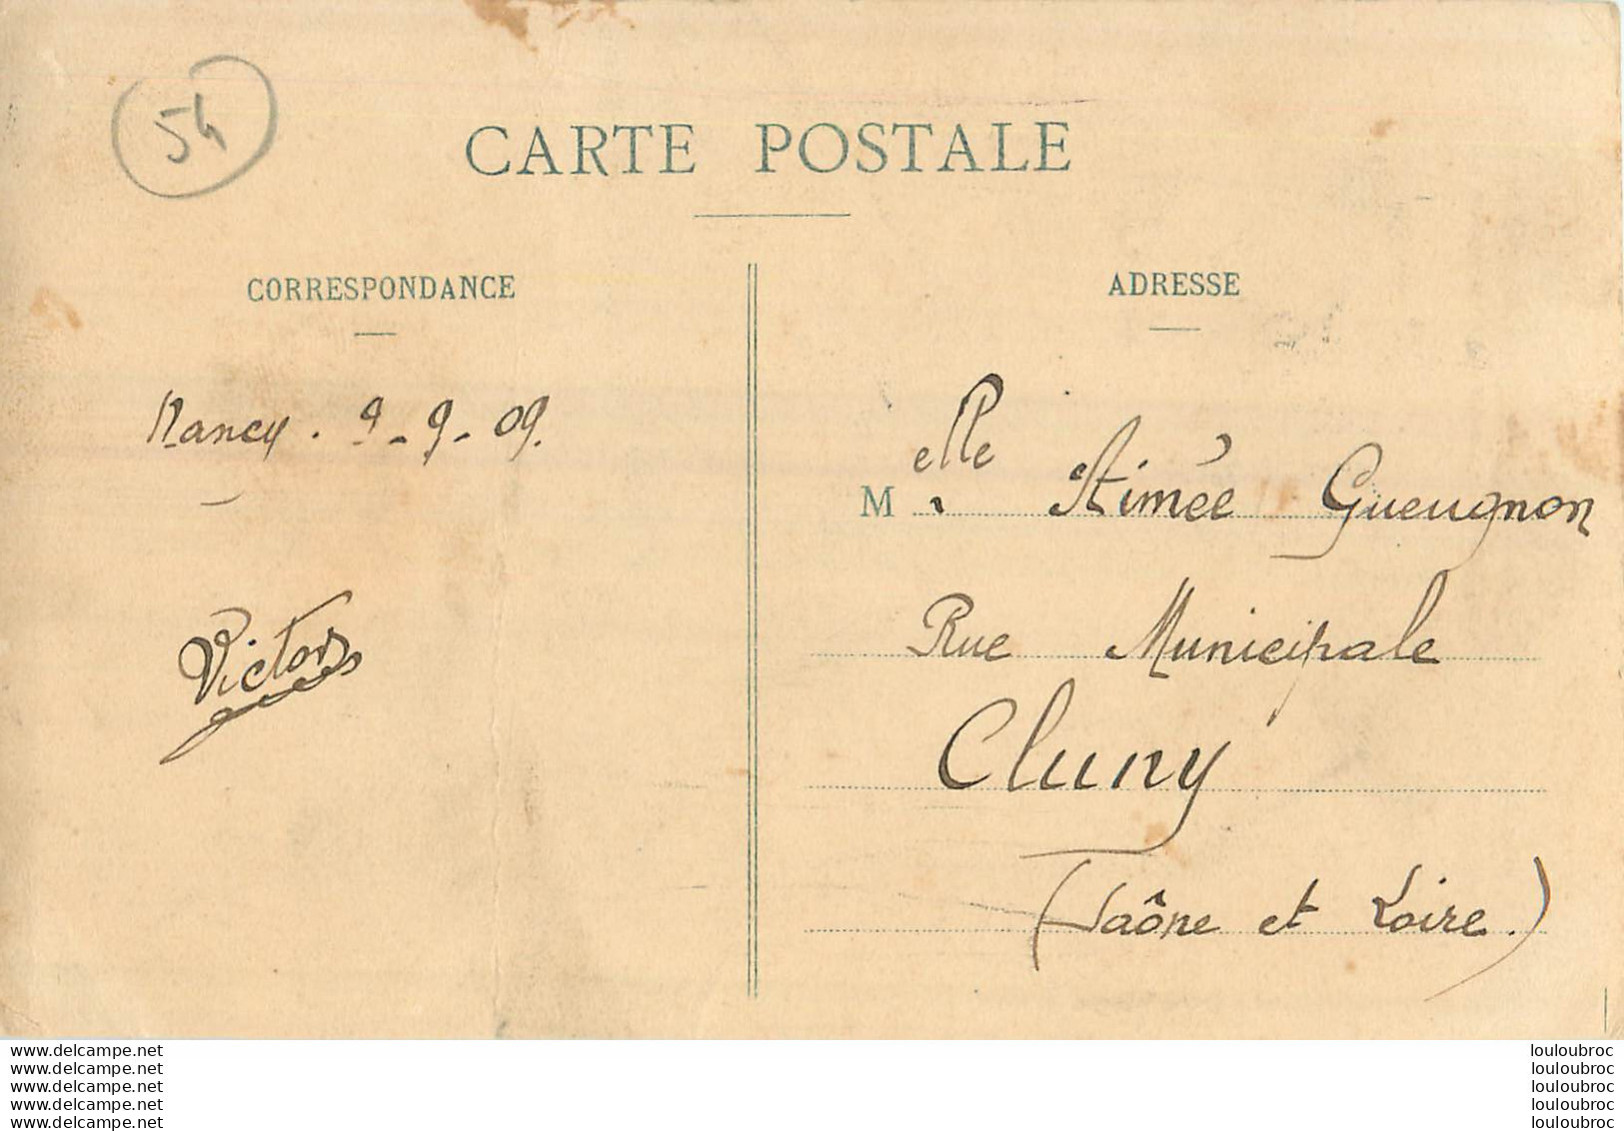 54
CARTE POSTALE
CORRESPONDANCE
ADRESSE
Nancy. 9-9-09.
Victor
elle
M. Aimée Gueugnon
Rue Municipale
Cluny
(Saône et Loire.)
www.delcampe.net
www.delcampe.net
www.delcampe.net
www.delcampe.net
www.delcampe.net
louloubroc
louloubroc
louloubroc
louloubroc
louloubroc